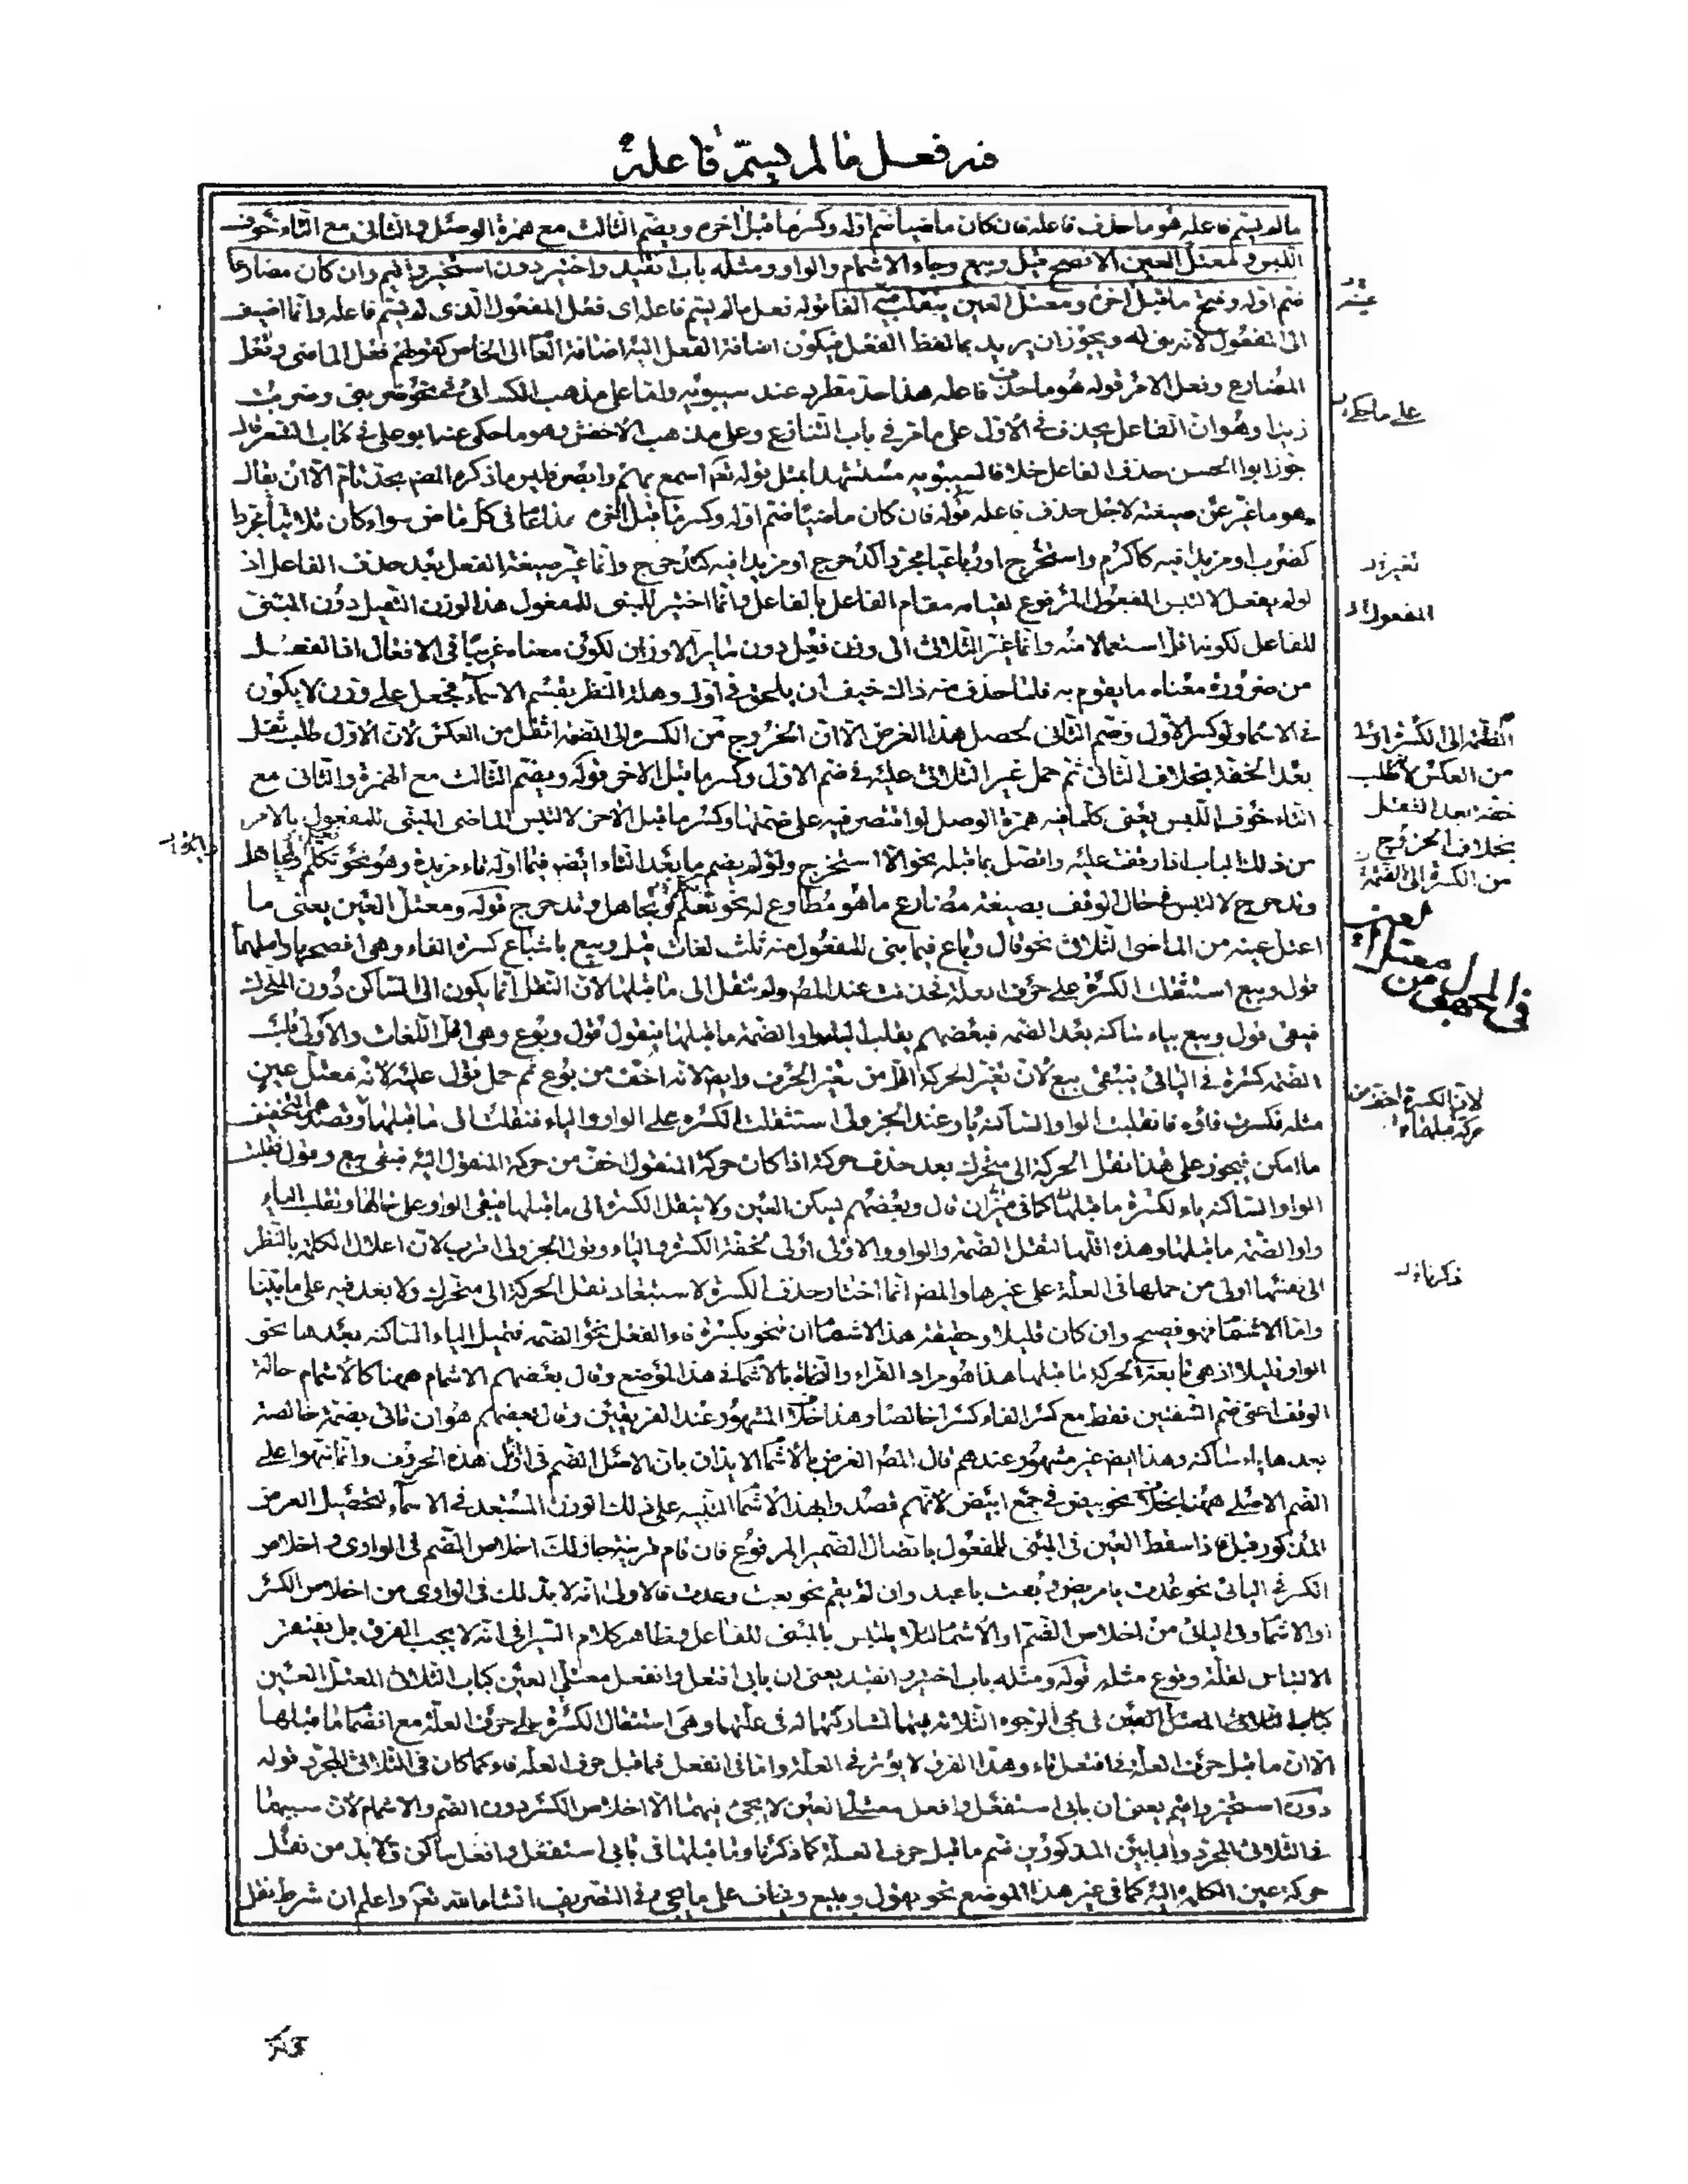 فى فعل ما لم يسمّ فاعله
ما لم يسمّ فاعله هو ما حذف فاعله فان كان ماضيا ضم اوله وكسر ما قبل اخره ويضم الثالث مع همزة الوصل والثانى مع التاء خوف
اللبس ومعتل العين الافصح قيل وبيع وجاء الاشمام والواو ومثله باب انقيد واختير دون استخير واقيم وان كان مضارعا
ضم اوله وفتح ما قبل اخره ومعتل العين ينقلب فيه الفا قوله فعل ما لم يسم فاعله اى فعل المفعول الذى لم يسم فاعله وانما اضيف
الى المفعول لانه بنى له ويجوز ان يريد بما لفظ الفعل فيكون اضافة الفعل اليه اضافة العام الى الخاص كقولهم فعل الماضى وفعل
المضارع وفعل الامر قوله هو ما حذف فاعله هذا حد مطرد عند سيبويه واما على مذهب الكسائى فى نحو ضربنى وضربت
زيدا وهو ان الفاعل يحذف فى الاول على ما مر فى باب التنازع وعلى مذهب الاخفش وهو ما حكى عنه ابو على فى كتاب الشعر قال
جوز ابو الحسن حذف الفاعل خلافا لسيبويه مستشهدا بمثل قوله تعم اسمع بهم وابصر فليس ما ذكره المصم بحد تام الا ان يقال
هو ما غير عن صيغته لاجل حذف فاعله قوله فان كان ماضيا ضم اوله وكسر ما قبل اخره هذا عام فى كل ماض سواء كان ثلاثيا مجردا
كضرب او مزيدا فيه كاكرم واستخرج او رباعيا مجردا كدحرج او مزيدا فيه كتدحرج وانما غير صيغة الفعل بعد حذف الفاعل اذ
لو لم يفعل لالتبس المفعول المرفوع لقيامه مقام الفاعل بالفاعل وانما اختير للمبنى للمفعول هذا الوزن الثقيل دون المبنى
للفاعل لكونه اقل استعمالا منه وانما غير الثلاثى الى وزن فعل دون ساير الاوزان لكون معناه غريبا فى الافعال اذ الفعل
من ضرورة معناه ما يقوم به فلما حذف منه ذلك خيف ان يلحق فى اول وهلة النظر بقسم الاسماء فجعل على وزن لا يكون
فى الاسماء ولو كسر الاول وضم الثانى لحصل هذا الغرض الا ان الخروج من الكسر الى الضمة اثقل من العكس لان الاول طلب ثقل
بعد الخفة بخلاف الثانى ثم حمل غير الثلاثى عليه فى ضم الاول وكسر ما قبل الاخر قوله ويضم الثالث مع الهمزة والثانى مع
التاء خوف اللبس يعنى كلما فيه همزة الوصل لو اقتصر فيه على ضمتها وكسر ما قبل الاخر لالتبس الماضى المبنى للمفعول بالامر
من ذلك الباب اذا وقفت عليه واتصل بما قبله نحو الا استخرج ولو لم يضم ما بعد التاء ايضا فيما اوله تاء مزيدة وهو نحو تكلم وتجاهل
وتدحرج لالتبس فى حال الوقف بصيغة مضارع ما هو مطاوع له نحو تعلم وتجاهل وتدحرج قوله ومعتل العين يعنى ما
اعتل عينه من الماضى الثلاثى نحو قال وباع فيما بنى للمفعول منه ثلث لغات قيل وبيع باشباع كسرة الفاء وهى افصحها واصلهما
قول وبيع استثقلت الكسرة على حرف العلة فحذفت عند المصم ولم تنقل الى ما قبلها لان النقل انما يكون الى الساكن دون المتحرك
فبقى قول وبيع بياء ساكنة بعد الضمة فبعضهم يقلب الياء واوا لضمة ما قبلها فيقول قول وبوع وهى اقل اللغات والاولى قلب
الضمة كسرة فى اليائى فيبقى بيع لان تغير الحركة اقل من تغير الحرف وايضا لانه اخف من بوع ثم حمل قول عليه لانه معتل عين
مثله فكسرت فاؤه فانقلبت الواو الساكنة ياء وعند الجزولى استثقلت الكسرة على الواو والياء فنقلت الى ما قبلها وقصدهم التخفيف
ما امكن فيجوز على هذا نقل الحركة الى متحرك بعد حذف حركته اذا كان حركة المنقول اخف من حركة المنقول اليه فبقى بيع وقول فقلبت
الواو الساكنة ياء لكسرة ما قبلها كما فى ميزان قال وبعضهم يسكن العين ولا ينقل الكسرة الى ما قبلها فيبقى الواو على حالها ويقلب الياء
واوا لضمة ما قبلها وهذه اقلها لثقل الضمة والواو والاولى اولى لخفة الكسرة والياء وقول الجزولى اقرب لان اعلال الكلمة بالنظر
الى نفسها اولى من حملها فى العلة على غيرها والمصم انما اختار حذف الكسرة لاستبعاد نقل الحركة الى متحرك ولا بعد فيه على ما بينا
واما الاشمام فهو فصيح وان كان قليلا وحقيقة هذا الاشمام ان تنحو بكسرة فاء الفعل نحو الضمة فتميل الياء الساكنة بعدها نحو
الواو قليلا اذ هى تابعة لحركة ما قبلها هذا هو مراد القراء والنحاة بالاشمام فى هذا الموضع وقال بعضهم الاشمام ههنا كالاشمام حالة
الوقف اعنى ضم الشفتين فقط مع كسر الفاء كسرا خالصا وهذا خلاف المشهور عند الفريقين وقال بعضهم هو ان تاتى بضمة خالصة
بعدها ياء ساكنة وهذا ايضا غير مشهور عندهم قال المصم الغرض بالاشمام الايذان بان الاصل الضم فى اوايل هذه الحروف وانما نبهوا على
الضم الاصلى ههنا بخلاف نحو بيض فى جمع ابيض لانهم قصدوا بهذا الاشمام التنبيه على ذلك الوزن المستبعد فى الاسماء لتحصيل الغرض
المذكور قبل فاذا سقط العين فى المبنى للمفعول باتصال الضمير المرفوع فان قام قرينة جاز لك اخلاص الضم فى الواوى واخلاص
الكسر فى اليائى نحو عدت يا مريض وبعت يا عبد وان لم يقم نحو بعت وعدت فالاولى انه لا بد لك فى الواوى من اخلاص الكسر
او الاشمام وفى اليائى من اخلاص الضم او الاشمام لئلا يلتبس بالمبنى للفاعل وظاهر كلام السيرافى انه لا يجب الفرق بل يغتفر
الالتباس لقلة وقوع مثله قوله ومثله باب اختير وانقيد يعنى ان بابى افتعل وانفعل معتلى العين كباب الثلاثى المعتل العين
كباب الثلاثى المعتل العين فى مجى الوجوه الثلاثة فيهما لمشاركتهما له فى علتها وهى استثقال الكسرة على حرف العلة مع انضمام ما قبلها
الا ان ما قبل حرف العلة فى افتعل تاء وهذا الفرق لا يؤثر فى العلة واما فى انفعل فما قبل حرف العلة فاء كما كان فى الثلاثى المجرد قوله
دون استخير واقيم يعنى ان بابى استفعل وافعل معتلى العين لا يجئ فيهما الا اخلاص الكسر دون الضم والاشمام لان سببهما
فى الثلاثى المجرد والبابين المذكورين ضم ما قبل حرف العلة كما ذكرنا وما قبلها فى بابى استفعل وافعل ساكن فلا بد من نقل
حركة عين الكلمة اليه كما فى غير هذا الموضع نحو يقول ويبيع ويخاف على ما يجئ فى التصريف انشاء الله تعم واعلم ان شرط نقل
على ما حكى
تغير
المفعول
الضمة الى الكسر اولى
من العكس لانه طلب
خفة بعد الثقل
بخلاف الخروج
من الكسرة الى الضمة
لان الكسرة اخف من
حركة ما قبلها
ذكرنا